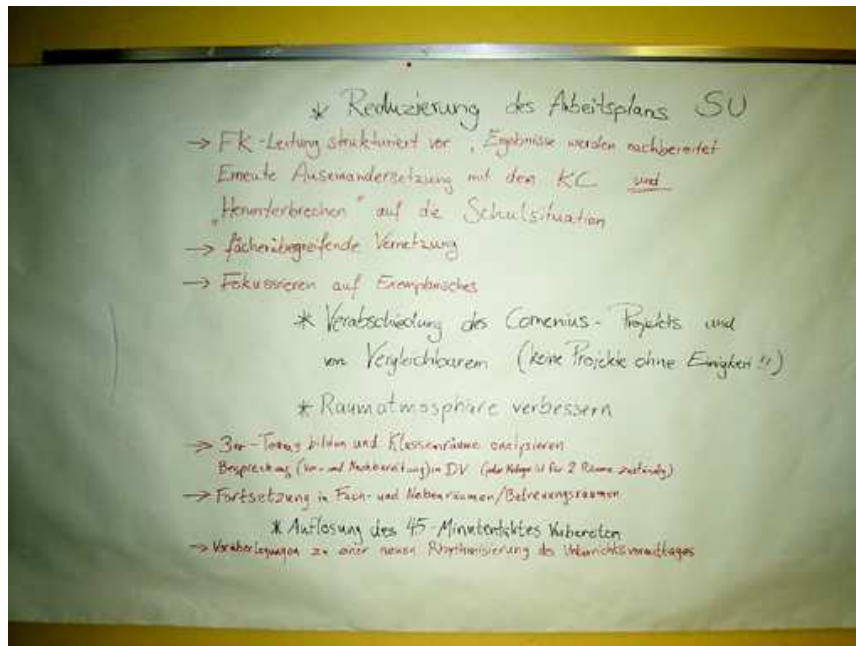 * Reduzierung des Arbeitsplans SU
→ FK-Leitung strukturiert vor, Ergebnisse werden nachbereitet
Erneute Auseinandersetzung mit dem KC und
„Herunterbrechen" auf die Schulsituation
→ fächerübegreifende Vernetzung
→ Fokussieren auf Exemplarisches
* Verabschiedung des Comenius-Projekts und
von Vergleichbarem (keine Projekte ohne Einigkeit!!)
* Raumatmosphäre verbessern
→ 3er-Teams bilden und Klassenräume analysieren
Besprechung (Vor- und Nachbereitung) in DV (jeder Kollege ist für 2 Räume zuständig)
→ Fortsetzung in Fach- und Nebenräumen/Betreuungsräumen
* Auflösung des 45-Minutentaktes vorbereiten
→ Vorüberlegungen zu einer neuen Rhythmisierung des Unterrichtsvormittages